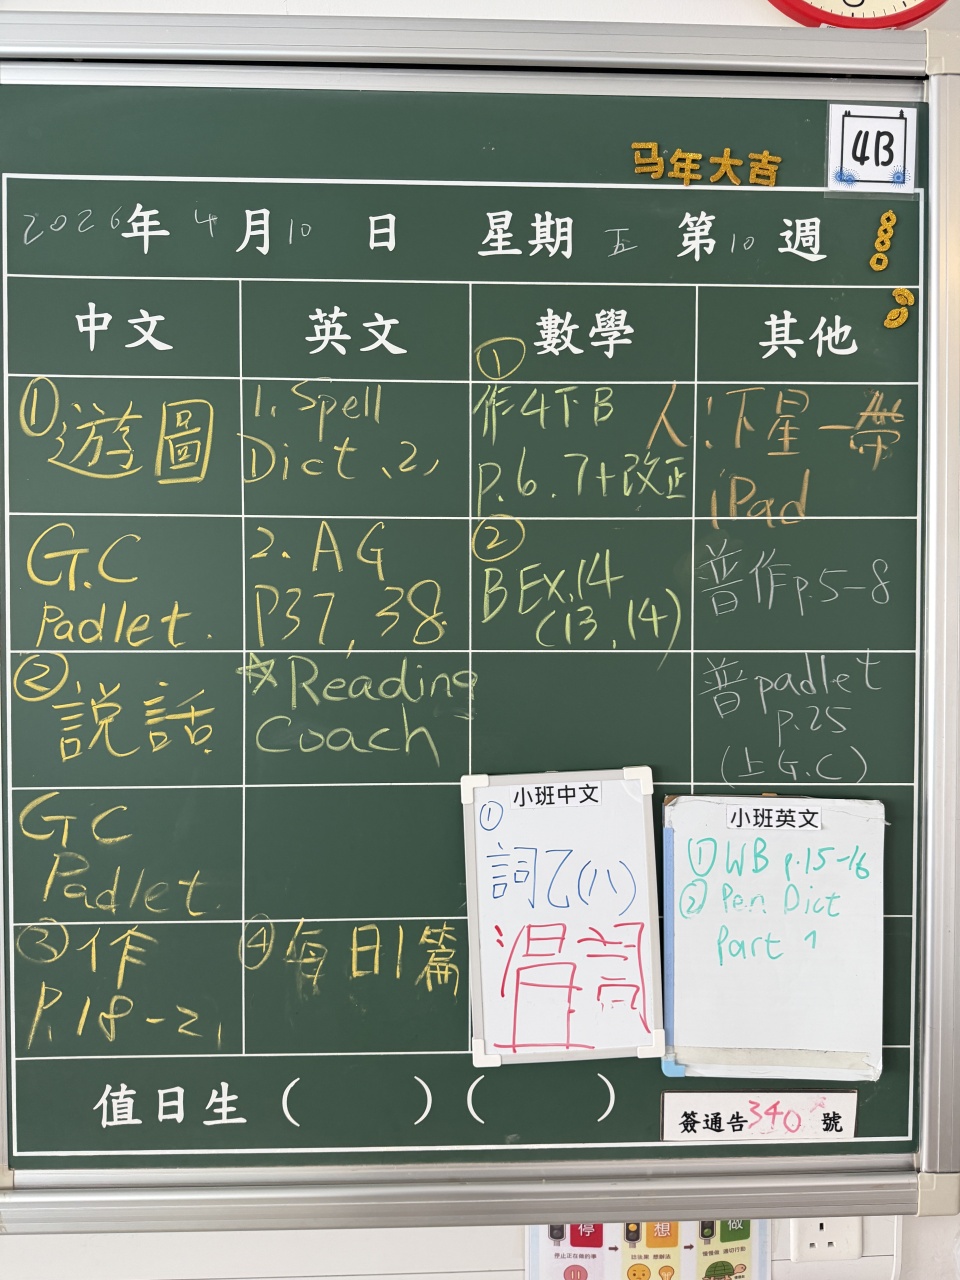 4B
马年大吉
2026年4月10日 星期五 第10週
中文 英文 數學 其他
①遊圖
G.C
Padlet.
②説話
GC
Padlet.
③作
P.18-21
1. Spell
Dict 、2,
2. AG
P37, 38
☆Reading
Coach
④每日1篇
①
作4下B
p.6.7+改正
②
BEx.14
(13, 14)
人:下星一帶
iPad
普作p.5-8
普padlet
p.25
(上G.C)
小班中文
①
詞乙(八)
小班英文
①WB p.15-16
②Pen Dict
Part 1
值日生 ( ) ( )
簽通告340號
停
想
做